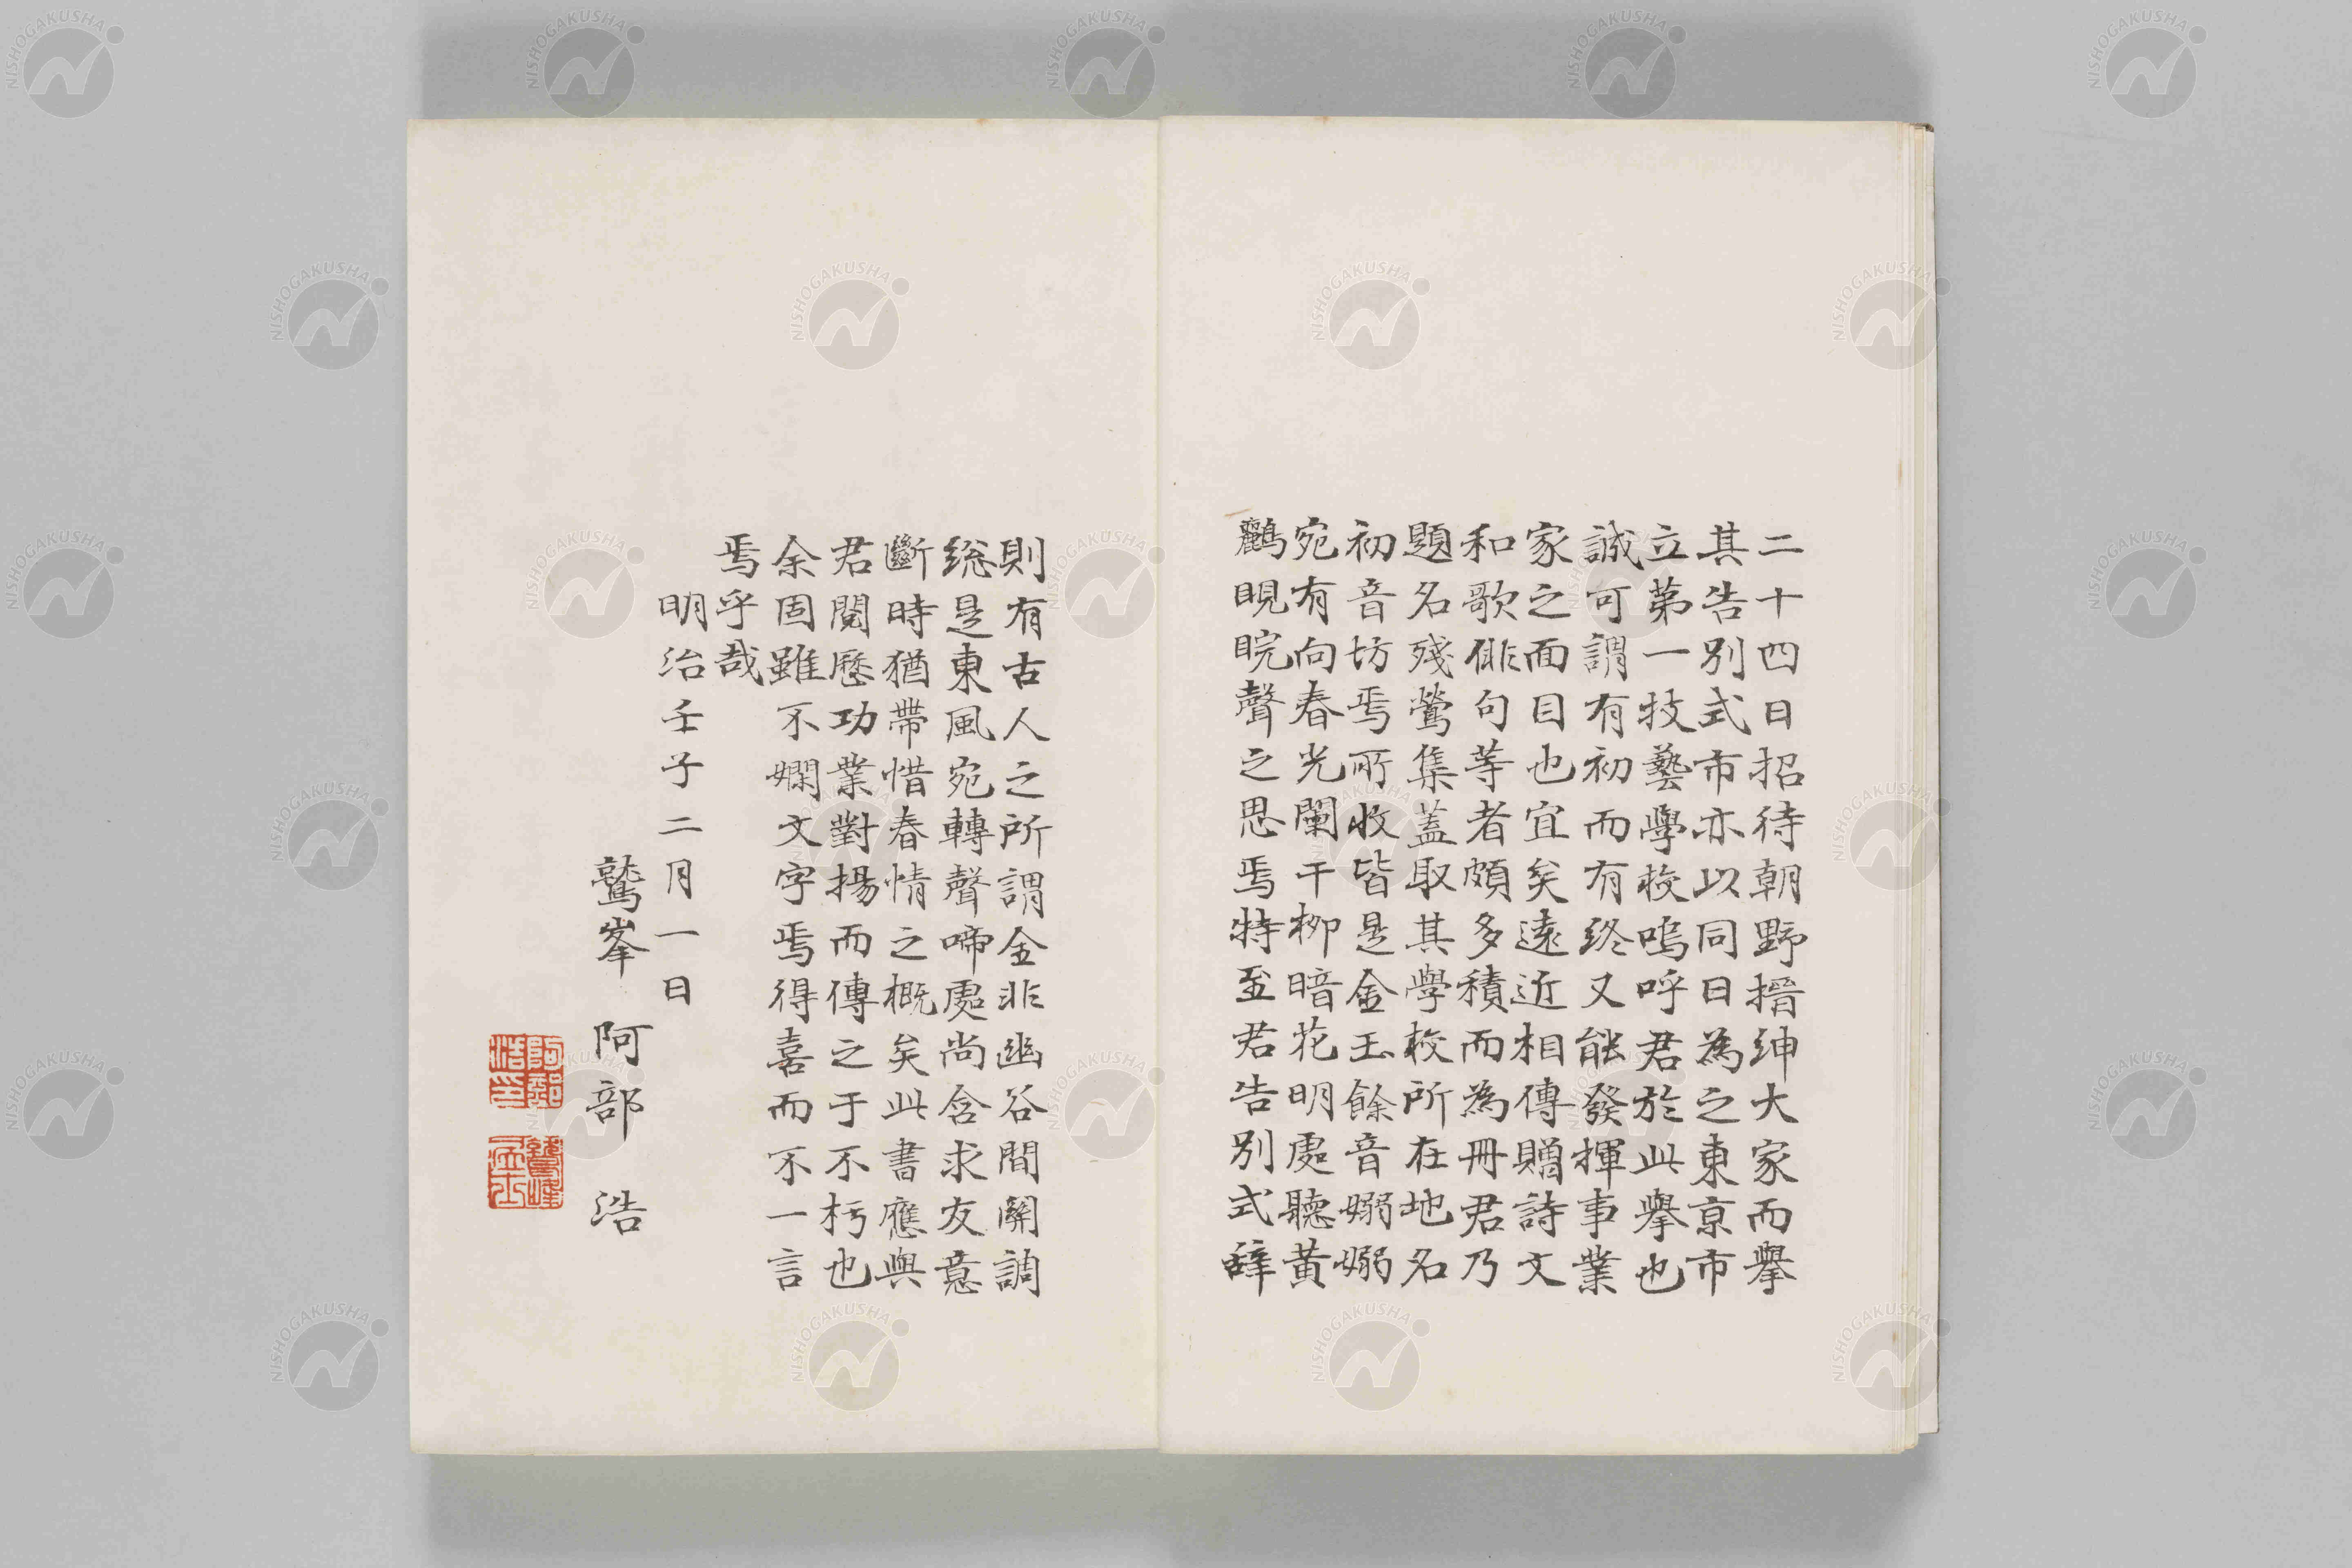 二十四日招待朝野搢紳大家而擧
其告別式市亦以同日為之東京市
立第一技藝學校嗚呼君於此擧也
誠可謂有初而有終又能發揮事業
家之面目也宜矣遠近相傳贈詩文
和歌俳句等者頗多積而為冊君乃
題名殘鶯集蓋取其學校所在地名
初音坊焉所收皆是金玉餘音嫋嫋
宛有向春光闌干柳暗花明處聽黃
鸝睍睆聲之思焉特至君告別式辞
則有古人之所謂金非幽谷間關調
総是東風宛轉聲啼處尚含求友意
斷時猶帶惜春情之概矣此書應與
君閱歷功業對揚而傳之于不朽也
余固雖不嫻文字焉得喜而不一言
焉乎哉
明治壬子二月一日
鷲峯 阿部 浩
阿部浩印
NISHOGAKUSHA